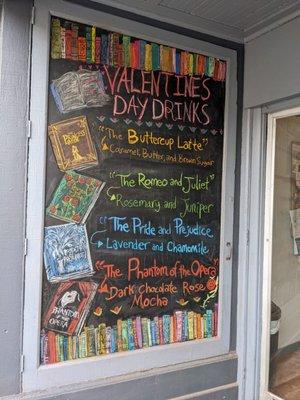 VALENTINE'S
DAY DRINKS
"The Buttercup Latte"
Caramel, Butter, and Brown Sugar
"The Romeo and Juliet"
Rosemary and Juniper
"The Pride and Prejudice"
Lavender and Chamomile
"The Phantom of the Opera"
Dark Chocolate Rose
Mocha
PHANTOM
OF THE
OPERA